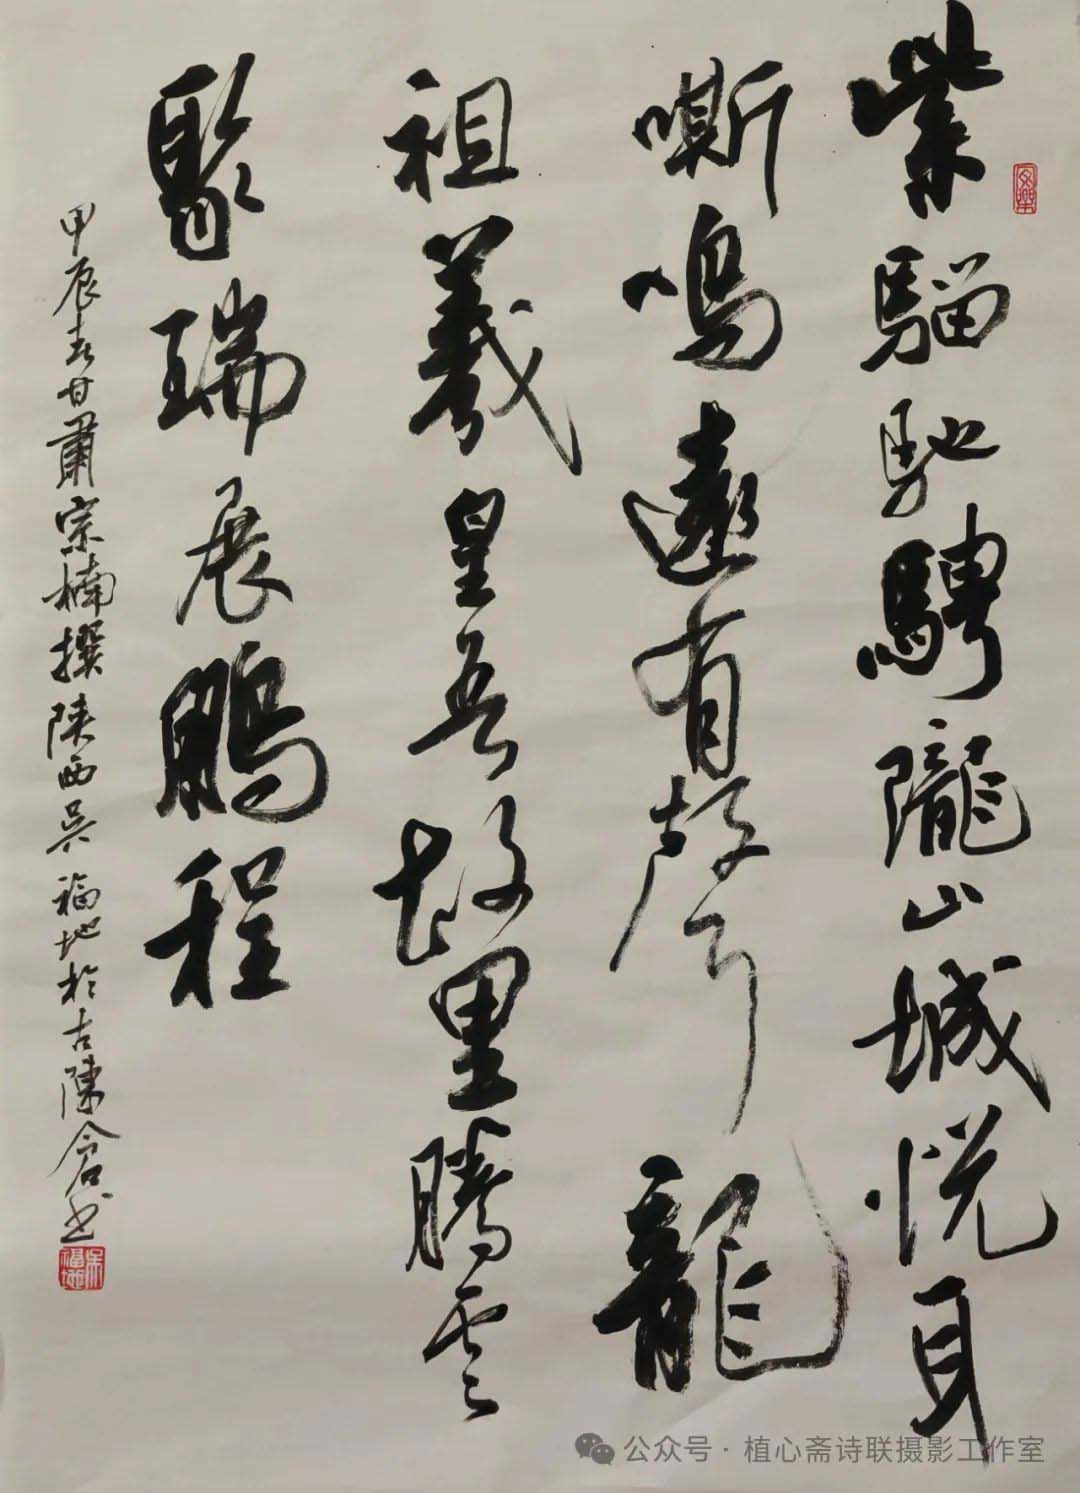 紫骝馳騁隴山城悦耳
嘶鳴遠有聲龍
祖羲皇吾故里騰雲
聚瑞展鵬程
甲辰春甘肅宗楠撰陕西吴福地於古陳倉书
吴福地
公众号·植心斋诗联摄影工作室